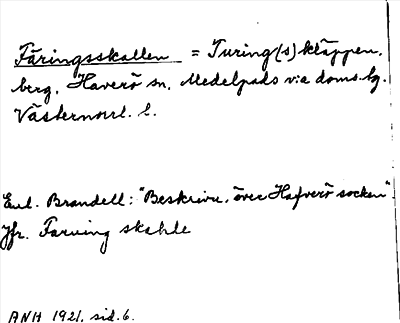 Färingsskallen = Turing(s)kläppen,
berg, Haverö sn, Medelpads v:a doms.
Västernorrl. l.
Enl. Brandell: "Beskrivn. över Hafverö socken".
Jfr. Farning skahle
ANH 1921, sid. 6.